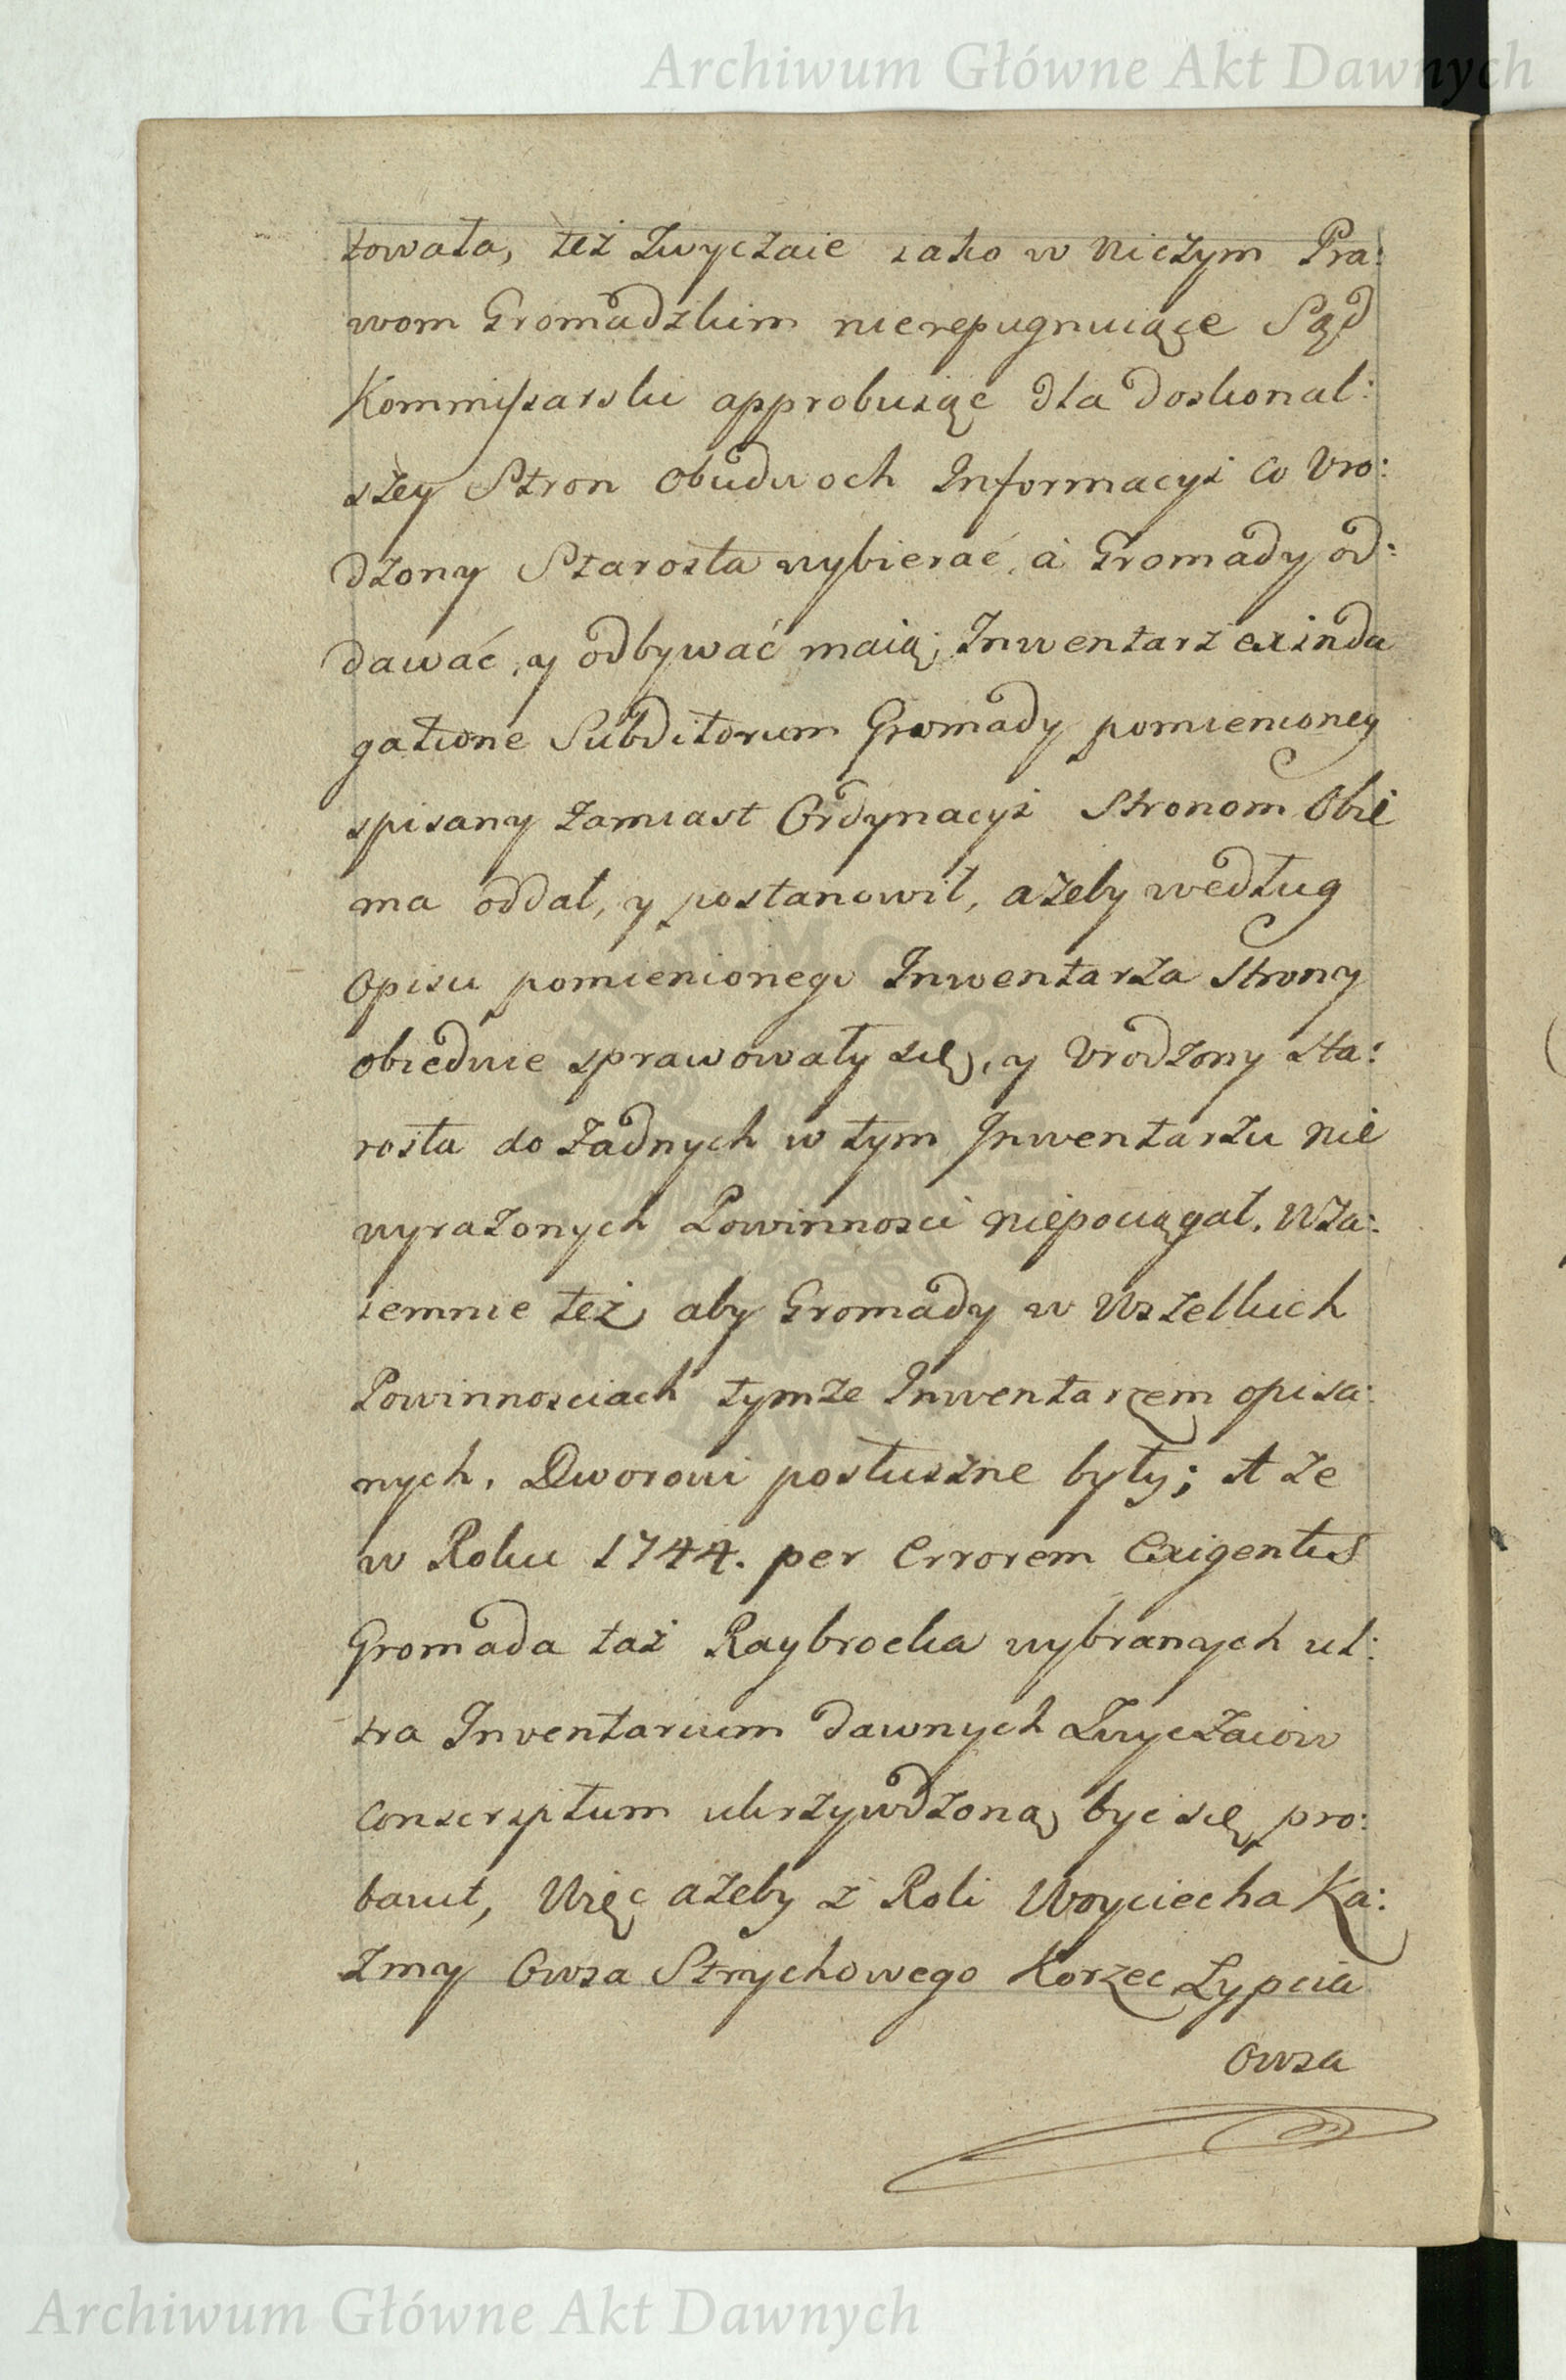 Archiwum Główne Akt Dawnych
towała, też Zwyczaie iako w niczym Pra:
wom Gromadzkim nierepugnuiące Sąd
Kommissarski approbuiąc dla doskonal:
szey Stron obudwoch Informacyi co Uro:
dzony Starosta wybierać, a Gromady od:
dawać, y odbywać maią; Inwentarz ex inda
gatione Subditorum Gromady pomienioney
spisany zamiast Ordynacyi Stronom Obie
ma oddał, y postanowił, ażeby według
Opisu pomienionego Inwentarza Strony
obiedwie sprawowały się, y Urodzony Sta:
rosta do żadnych w tym Inwentarzu nie
wyrażonych Powinnosci niepociągał. Wza:
iemnie też aby Gromady w wszelkich
Powinnosciach tymże Inwentarzem opisa:
nych, Dworowi posłuszne były; A że
w Roku 1744. per Errorem Exigentis
Gromada taż Raybrocka wybranych ul:
tra Inventarium dawnych Zwyczaiow
Conscriptum ukrzywdzoną być się pro:
bavit, Więc ażeby z Roli Woyciecha Ka:
zmy Owsa Strychowego Korzec Zypcia
Owsa
Archiwum Główne Akt Dawnych